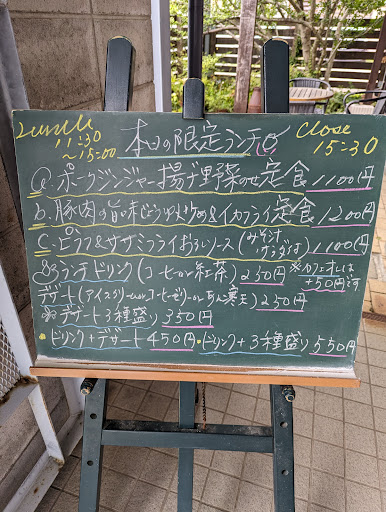 Lunch
11:30
~15:00
本日の限定ランチ
close
15:30
a. ポークジンジャー揚げ野菜のせ定食 1100円
b. 豚肉の旨味しょうゆ炒め&イカフライ定食 1200円
c. ピラフ&ササミフライおろしソース(みそ汁
つけもの付) 1100円
ランチドリンク(コーヒーor紅茶) 230円 ※カフェオレは
+50円です
デザート(アイスクリームorコーヒーゼリーorあん寒天) 250円
デザート3種盛り 350円
・ドリンク+デザート 450円 ・ドリンク+3種盛り 550円